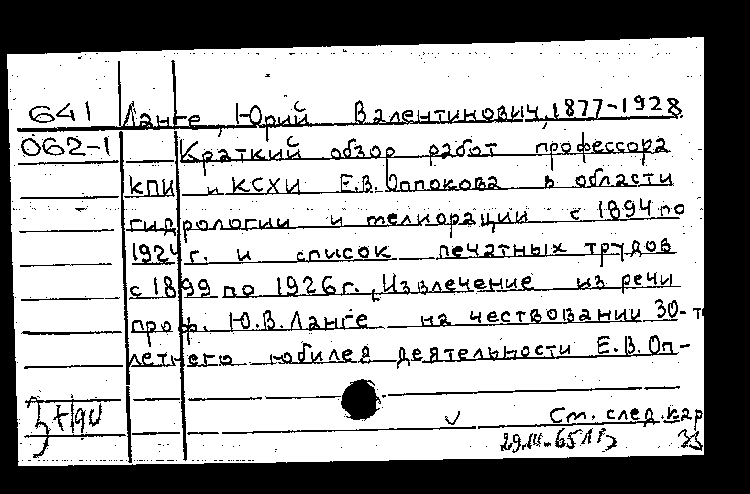 641 Ланге, Юрий Валентинович, 1877-1928
062-1 Краткий обзор работ профессора
КПИ и КСХИ Е.В. Оппокова в области
гидрологии и мелиорации с 1894 по
1924 г. и список печатных трудов
с 1899 по 1926 г. Извлечение из речи
проф. Ю.В. Ланге на чествовании 30-
летнего юбилея деятельности Е.В. Оп-
См. след. кар